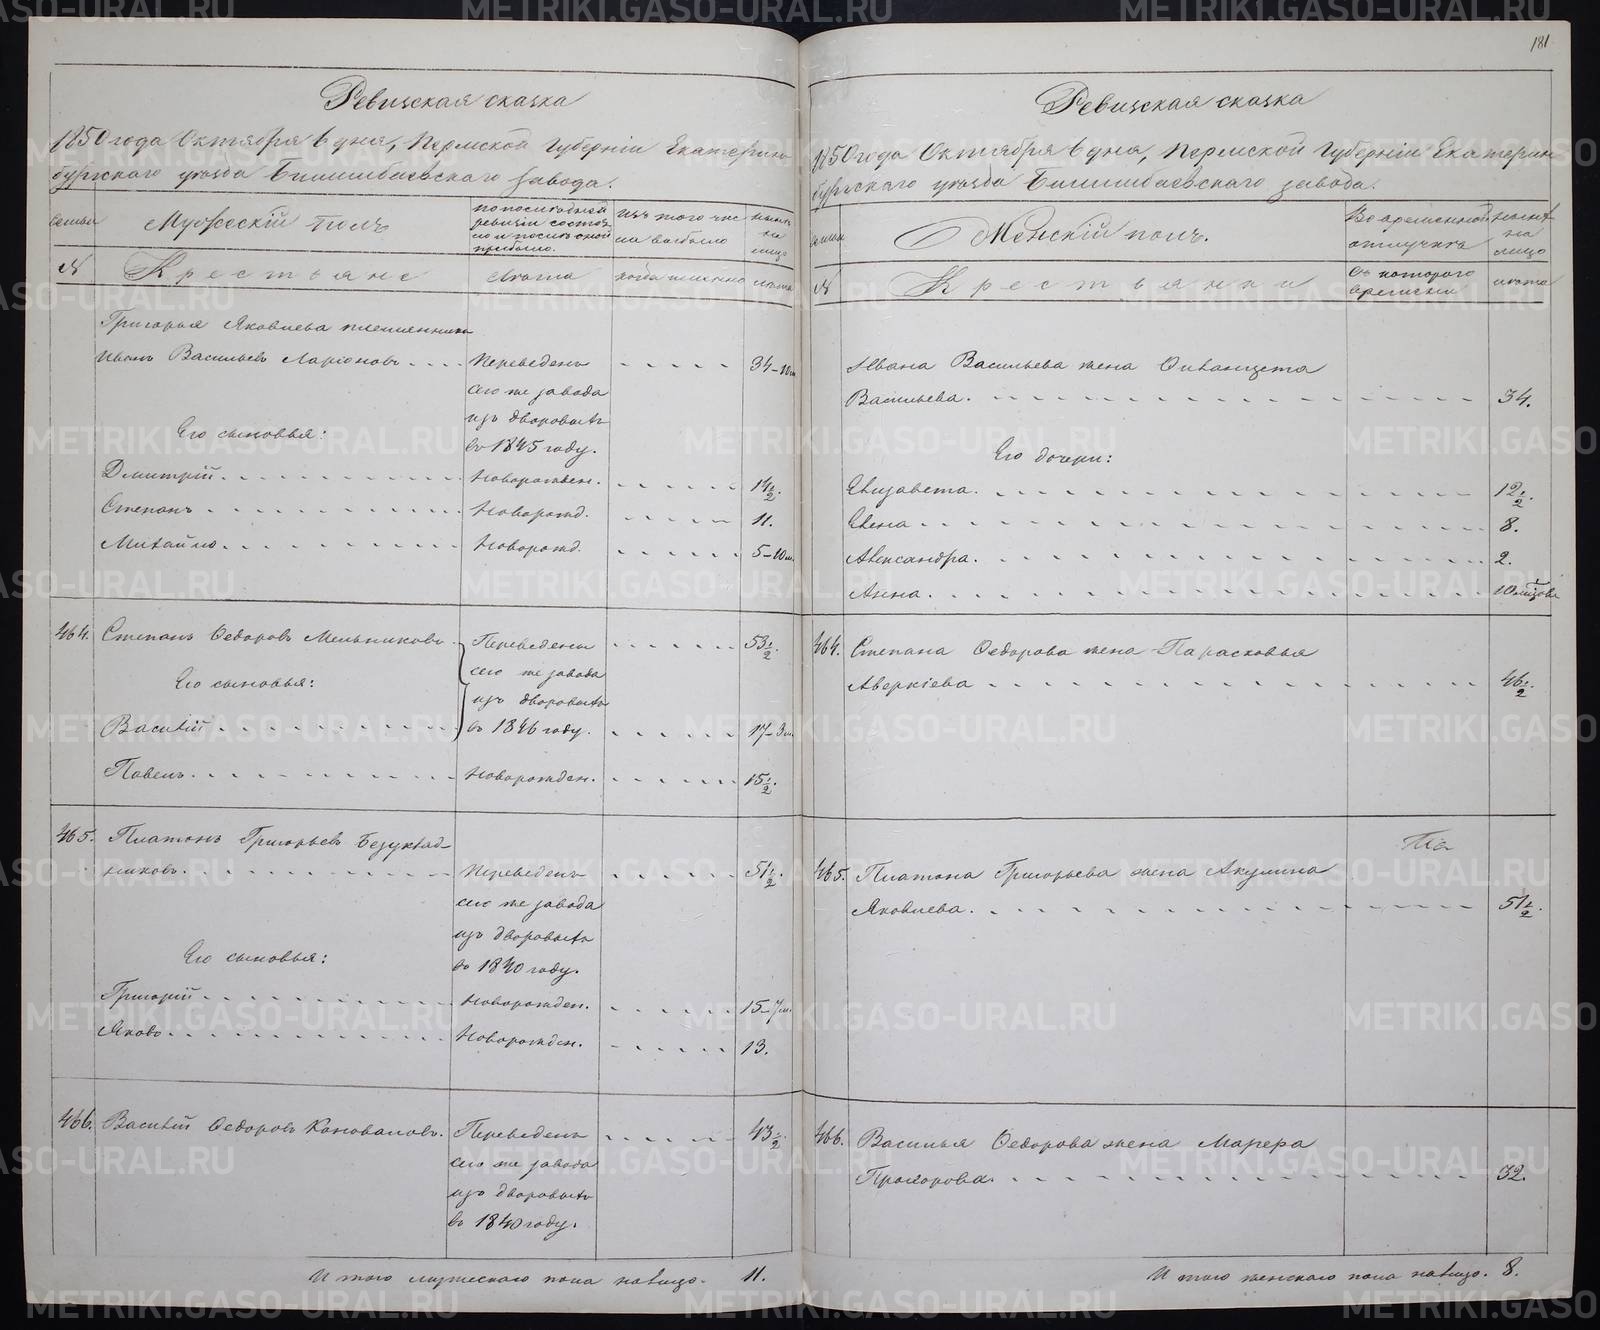 181
Ревизская сказка
1850 года Октября 6 дня, Пермской Губерніи Екатерин-
бургскаго уезда Билимбаевскаго завода.
семьи
Мужескій полъ
по последней
ревизіи состоя-
ло и после оной
прибыло.
Изъ того чис-
ла выбыло
ныне
на
лицо
№
Крестьяне
Лета
когда именно
лета
Григорья Яковлева племянникъ
Иванъ Васильевъ Ларіоновъ
Переведенъ
34-10м
сего же завода
изъ дворовыхъ
въ 1845 году.
Его сыновья:
Дмитрій
Новорожден.
14 1/2.
Степанъ
Новорожд.
11.
Михайло
Новорожд.
5-10м.
464.
Степанъ Федоровъ Мельниковъ
Переведены
53 1/2.
сего же завода
изъ дворовыхъ
въ 1846 году.
Его сыновья:
Василій
17-3м.
Павелъ
Новорожден.
15 1/2.
465.
Платонъ Григорьевъ Безуклад-
никовъ.
Переведенъ
51 1/2.
сего же завода
изъ дворовыхъ
въ 1840 году.
Его сыновья:
Григорій
Новорожден.
15-7м.
Яковъ
Новорожден.
13.
466.
Василій Федоровъ Коноваловъ.
Переведенъ
43 1/2.
сего же завода
изъ дворовыхъ
въ 1840 году.
Итого мужескаго пола налицо.
11.
Ревизская сказка
1850 года Октября 6 дня, Пермской Губерніи Екатерин-
бургскаго уезда Билимбаевскаго завода.
семьи
Женскій полъ.
Во временной
отлучке
ныне
на
лицо
№
Крестьянки
Съ котораго
времени
лета
Ивана Васильева жена
Васильева.
34.
Его дочери:
Елизавета.
12 1/2.
Елена
8.
Александра.
2.
Анна.
464.
Степана Федорова жена Парасковья
Аверкіева
46 1/2.
465.
Платона Григорьева жена Акулина
Яковлева.
51 1/2.
466.
Василья Федорова жена
Прохорова.
32.
Итого женскаго пола налицо.
8.
METRIKI.GASO-URAL.RU